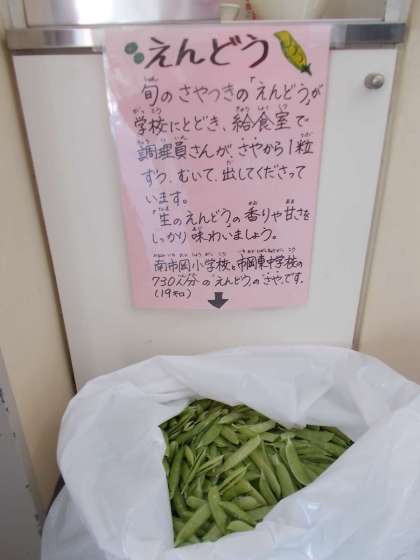 えんどう
旬のさやつきの「えんどう」が
学校にとどき、給食室で
調理員さんが、さやから1粒
ずつ、むいて、出してくださって
います。
「生のえんどう」の香りや甘さを
しっかり味わいましょう。
南市岡小学校と市岡東中学校の
730人分の「えんどう」の「さや」です。
(19キロ)